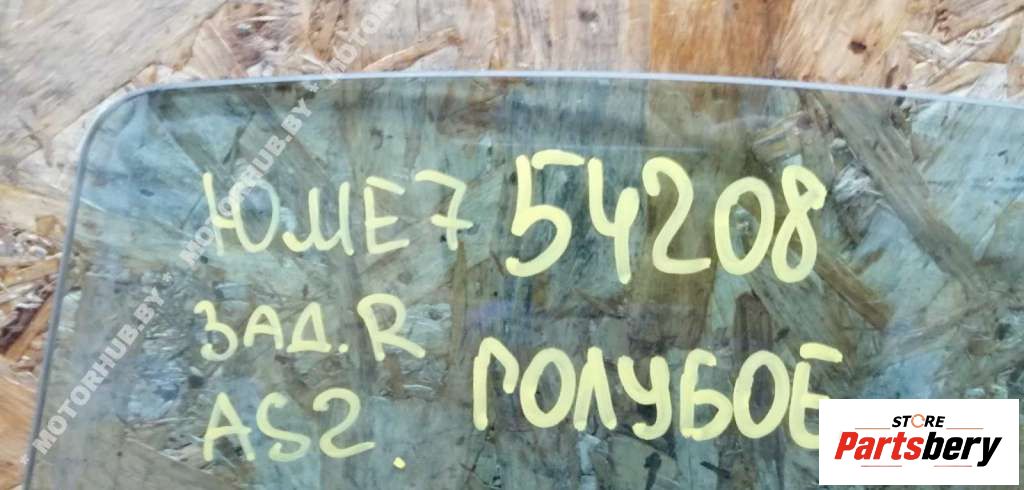 ЮМЕ7 54208
ЗАД.R
ГОЛУБОЕ
AS2.
STORE
Partsbery
MOTORHUB.BY * MOTORHUB.BY * MOTOR